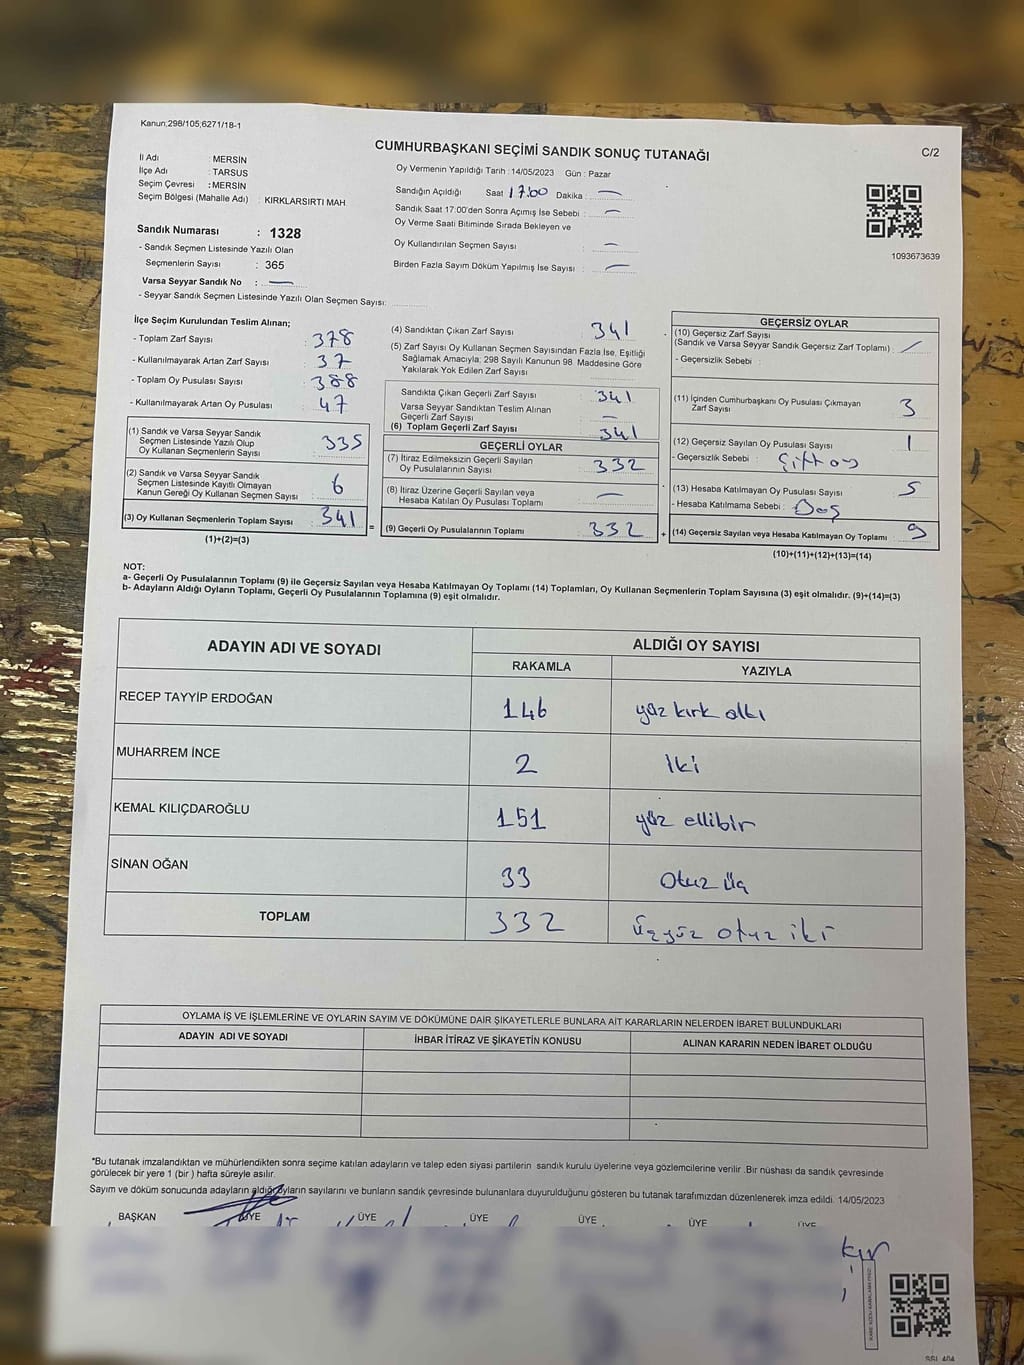 Kanun;298/105;6271/18-1
CUMHURBAŞKANI SEÇİMİ SANDIK SONUÇ TUTANAĞI
C/2
İl Adı : MERSİN
İlçe Adı : TARSUS
Seçim Çevresi : MERSİN
Seçim Bölgesi (Mahalle Adı) : KIRKLARSIRTI MAH.
Sandık Numarası : 1328
- Sandık Seçmen Listesinde Yazılı Olan
Seçmenlerin Sayısı : 365
Varsa Seyyar Sandık No : —
- Seyyar Sandık Seçmen Listesinde Yazılı Olan Seçmen Sayısı:
Oy Vermenin Yapıldığı Tarih : 14/05/2023 Gün : Pazar
Sandığın Açıldığı Saat 17:00 Dakika : —
Sandık Saat 17:00'den Sonra Açımış İse Sebebi : —
Oy Verme Saati Bitiminde Sırada Bekleyen ve
Oy Kullandırılan Seçmen Sayısı : —
Birden Fazla Sayım Döküm Yapılmış İse Sayısı : —
1093673639
İlçe Seçim Kurulundan Teslim Alınan;
- Toplam Zarf Sayısı : 378
- Kullanılmayarak Artan Zarf Sayısı : 37
- Toplam Oy Pusulası Sayısı : 388
- Kullanılmayarak Artan Oy Pusulası : 47
(1) Sandık ve Varsa Seyyar Sandık
Seçmen Listesinde Yazılı Olup
Oy Kullanan Seçmenlerin Sayısı : 335
(2) Sandık ve Varsa Seyyar Sandık
Seçmen Listesinde Kayıtlı Olmayan
Kanun Gereği Oy Kullanan Seçmen Sayısı : 6
(3) Oy Kullanan Seçmenlerin Toplam Sayısı : 341
(1)+(2)=(3)
(4) Sandıktan Çıkan Zarf Sayısı : 341
(5) Zarf Sayısı Oy Kullanan Seçmen Sayısından Fazla İse, Eşitliği
Sağlamak Amacıyla; 298 Sayılı Kanunun 98. Maddesine Göre
Yakılarak Yok Edilen Zarf Sayısı
Sandıkta Çıkan Geçerli Zarf Sayısı : 341
Varsa Seyyar Sandıktan Teslim Alınan
Geçerli Zarf Sayısı : —
(6) Toplam Geçerli Zarf Sayısı : 341
GEÇERLİ OYLAR
(7) İtiraz Edilmeksizin Geçerli Sayılan
Oy Pusulalarının Sayısı : 332
(8) İtiraz Üzerine Geçerli Sayılan veya
Hesaba Katılan Oy Pusulası Toplamı : —
= (9) Geçerli Oy Pusulalarının Toplamı : 332
GEÇERSİZ OYLAR
(10) Geçersiz Zarf Sayısı
(Sandık ve Varsa Seyyar Sandık Geçersiz Zarf Toplamı) : —
- Geçersizlik Sebebi :
(11) İçinden Cumhurbaşkanı Oy Pusulası Çıkmayan
Zarf Sayısı : 3
(12) Geçersiz Sayılan Oy Pusulası Sayısı : 1
- Geçersizlik Sebebi : Çift oy
(13) Hesaba Katılmayan Oy Pusulası Sayısı : 5
- Hesaba Katılmama Sebebi : Boş
+ (14) Geçersiz Sayılan veya Hesaba Katılmayan Oy Toplamı : 9
(10)+(11)+(12)+(13)=(14)
NOT:
a- Geçerli Oy Pusulalarının Toplamı (9) ile Geçersiz Sayılan veya Hesaba Katılmayan Oy Toplamı (14) Toplamları, Oy Kullanan Seçmenlerin Toplam Sayısına (3) eşit olmalıdır. (9)+(14)=(3)
b- Adayların Aldığı Oyların Toplamı, Geçerli Oy Pusulalarının Toplamına (9) eşit olmalıdır.
ADAYIN ADI VE SOYADI ALDIĞI OY SAYISI
RAKAMLA YAZIYLA
RECEP TAYYİP ERDOĞAN 146 yüz kırk altı
MUHARREM İNCE 2 iki
KEMAL KILIÇDAROĞLU 151 yüz ellibir
SİNAN OĞAN 33 Otuz üç
TOPLAM 332 üçyüz otuz iki
OYLAMA İŞ VE İŞLEMLERİNE VE OYLARIN SAYIM VE DÖKÜMÜNE DAİR ŞİKAYETLERLE BUNLARA AİT KARARLARIN NELERDEN İBARET BULUNDUKLARI
ADAYIN ADI VE SOYADI İHBAR İTİRAZ VE ŞİKAYETİN KONUSU ALINAN KARARIN NEDEN İBARET OLDUĞU
*Bu tutanak imzalandıktan ve mühürlendikten sonra seçime katılan adayların ve talep eden siyasi partilerin sandık kurulu üyelerine veya gözlemcilerine verilir .Bir nüshası da sandık çevresinde
görülecek bir yere 1 (bir ) hafta süreyle asılır.
Sayım ve döküm sonucunda adayların aldığı oyların sayılarını ve bunların sandık çevresinde bulunanlara duyurulduğunu gösteren bu tutanak tarafımızdan düzenlenerek imza edildi. 14/05/2023
BAŞKAN ÜYE ÜYE ÜYE ÜYE ÜYE ÜYE